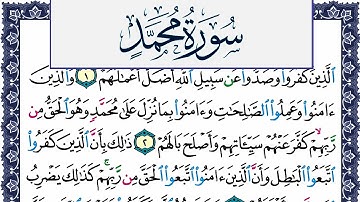 سُورَةُ مُحَمَّدٍ
ٱلَّذِينَ كَفَرُوا۟ وَصَدُّوا۟ عَن سَبِيلِ ٱللَّهِ أَضَلَّ أَعْمَٰلَهُمْ ١ وَٱلَّذِينَ
ءَامَنُوا۟ وَعَمِلُوا۟ ٱلصَّٰلِحَٰتِ وَءَامَنُوا۟ بِمَا نُزِّلَ عَلَىٰ مُحَمَّدٍ وَهُوَ ٱلْحَقُّ مِن
رَّبِّهِمْ كَفَّرَ عَنْهُمْ سَيِّـَٔاتِهِمْ وَأَصْلَحَ بَالَهُمْ ٢ ذَٰلِكَ بِأَنَّ ٱلَّذِينَ كَفَرُوا۟
ٱتَّبَعُوا۟ ٱلْبَٰطِلَ وَأَنَّ ٱلَّذِينَ ءَامَنُوا۟ ٱتَّبَعُوا۟ ٱلْحَقَّ مِن رَّبِّهِمْ ۚ كَذَٰلِكَ يَضْرِبُ